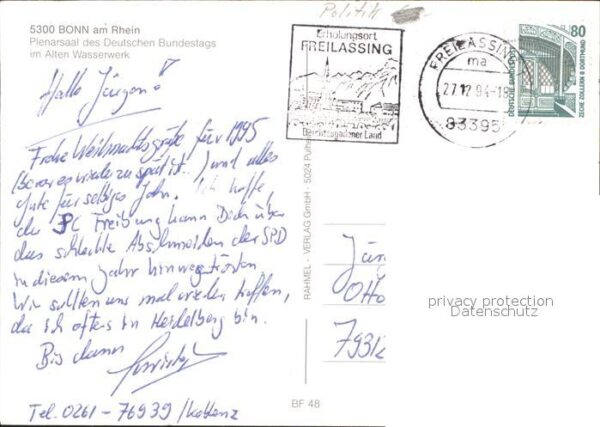 Politik
5300 BONN am Rhein
Plenarsaal des Deutschen Bundestags
im Alten Wasserwerk
Erholungsort
FREILASSING
Berchtesgadener Land
FREILASSING
ma
27.12.94-18
83395
80
DEUTSCHE BUNDESPOST
ZECHE ZOLLERN II DORTMUND
Hallo Jürgen!
Frohe Weihnachtsgrüße für 1995
(bevor es wieder zu spät ist...) und alles
Gute für selbiges Jahr. Ich hoffe,
der SC Freiburg kann Dich über
das schlechte Abschneiden der SPD
in diesem Jahr hinwegtrösten.
Wir sollten uns mal wieder treffen,
da ich öfters in Heidelberg bin.
Bis dann
Tel. 0261-76939 / Koblenz
RAHMEL-VERLAG GmbH · 5024 Pulheim
BF 48
Jür
Otto
7931
privacy protection
Datenschutz